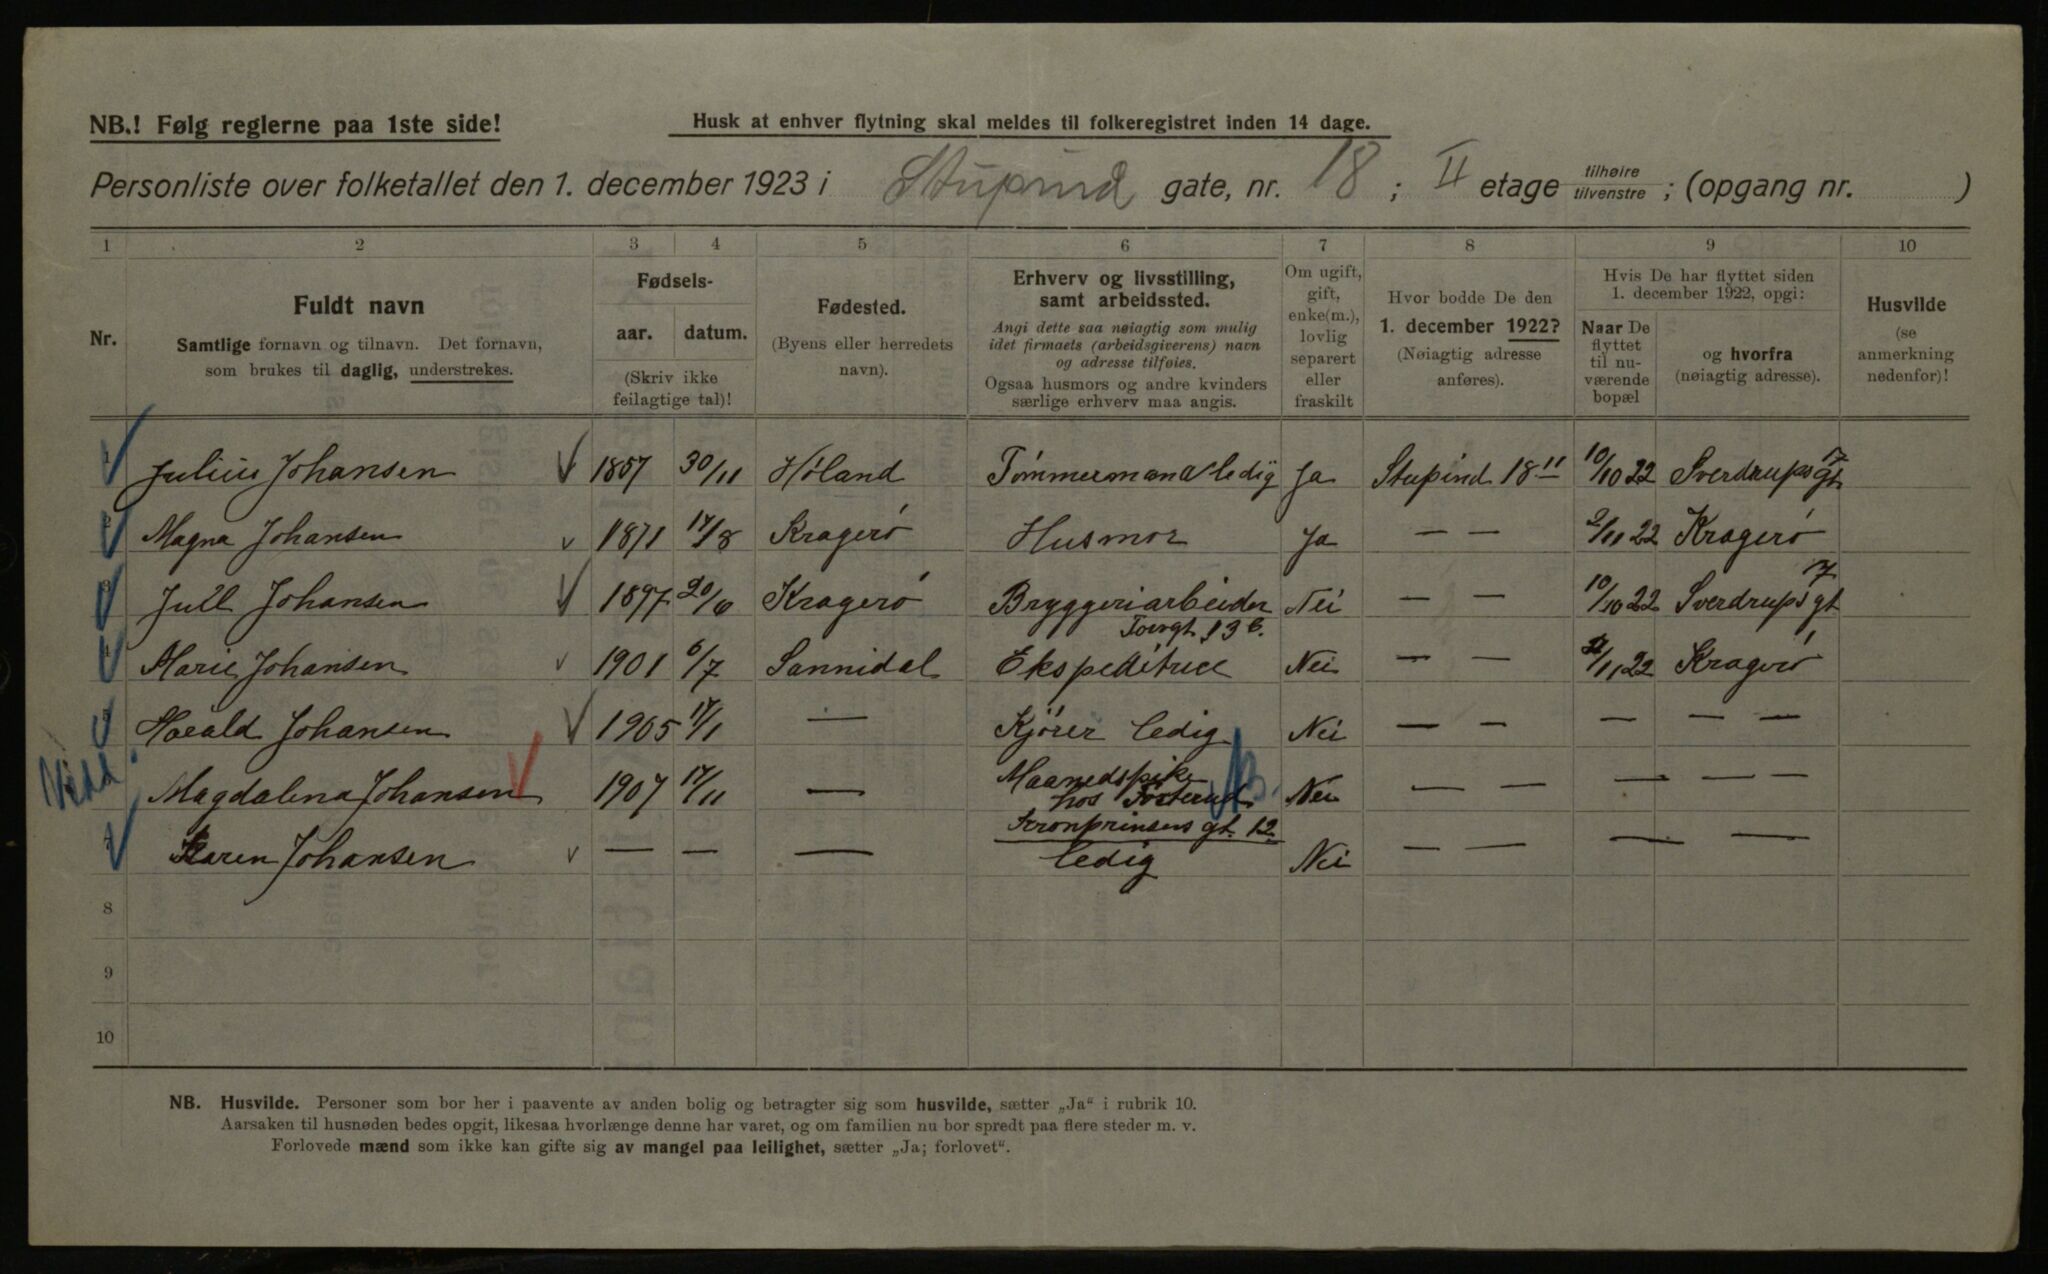 NB.! Følg reglerne paa 1ste side!
Husk at enhver flytning skal meldes til folkeregistret inden 14 dage.
Personliste over folketallet den 1. december 1923 i Stupind gate, nr. 18 ; II etage tilhøire tilvenstre ; (opgang nr. )
1 2 3 4 5 6 7 8 9 10
Nr.
Fuldt navn
Samtlige fornavn og tilnavn. Det fornavn,
som brukes til daglig, understrekes.
Fødsels-
aar. datum.
(Skriv ikke
feilagtige tal)!
Fødested.
(Byens eller herredets
navn).
Erhverv og livsstilling,
samt arbeidssted.
Angi dette saa nøiagtig som mulig
idet firmaets (arbeidsgiverens) navn
og adresse tilføies.
Ogsaa husmors og andre kvinders
særlige erhverv maa angis.
Om ugift,
gift,
enke(m.),
lovlig
separert
eller
fraskilt
Hvor bodde De den
1. december 1922?
(Nøiagtig adresse
anføres).
Hvis De har flyttet siden
1. december 1922, opgi:
Naar De
flyttet
til nu-
værende
bopæl
og hvorfra
(nøiagtig adresse).
Husvilde
(se
anmerkning
nedenfor)!
1 Julius Johansen 1857 30/11 Høland Tømmermand ledig Ja Stupind 18 II 10/10 22 Sverdrupsgt 17
2 Magna Johansen 1871 17/8 Kragerø Husmor Ja — — 2/11 22 Kragerø
3 Jull Johansen 1897 20/6 Kragerø Bryggeriarbeider Nei — — 10/10 22 Sverdrupsgt 17
Torvgt 13 b.
4 Marie Johansen 1901 6/7 Sannidal Ekspeditrice Nei — — 2/11 22 Kragerø
5 Harald Johansen 1905 17/1 — Kjører ledig Nei — — — — —
Magdalena Johansen 1907 17/11 — Maanedspike Nei — — — — —
hos Fosterud
Kronprinsens gt. 12
7 Karen Johansen — — — ledig Nei — — — —
8
9
10
NB. Husvilde. Personer som bor her i paavente av anden bolig og betragter sig som husvilde, sætter „Ja“ i rubrik 10.
Aarsaken til husnøden bedes opgit, likesaa hvorlænge denne har varet, og om familien nu bor spredt paa flere steder m. v.
Forlovede mænd som ikke kan gifte sig av mangel paa leilighet, sætter „Ja; forlovet“.